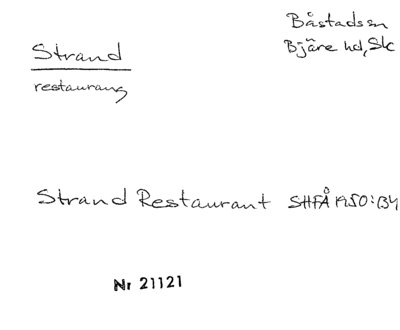 Strand
restaurang
Båstads sn
Bjäre hd, Sk
Strand Restaurant SHFÅ 1950:134
Nr 21121